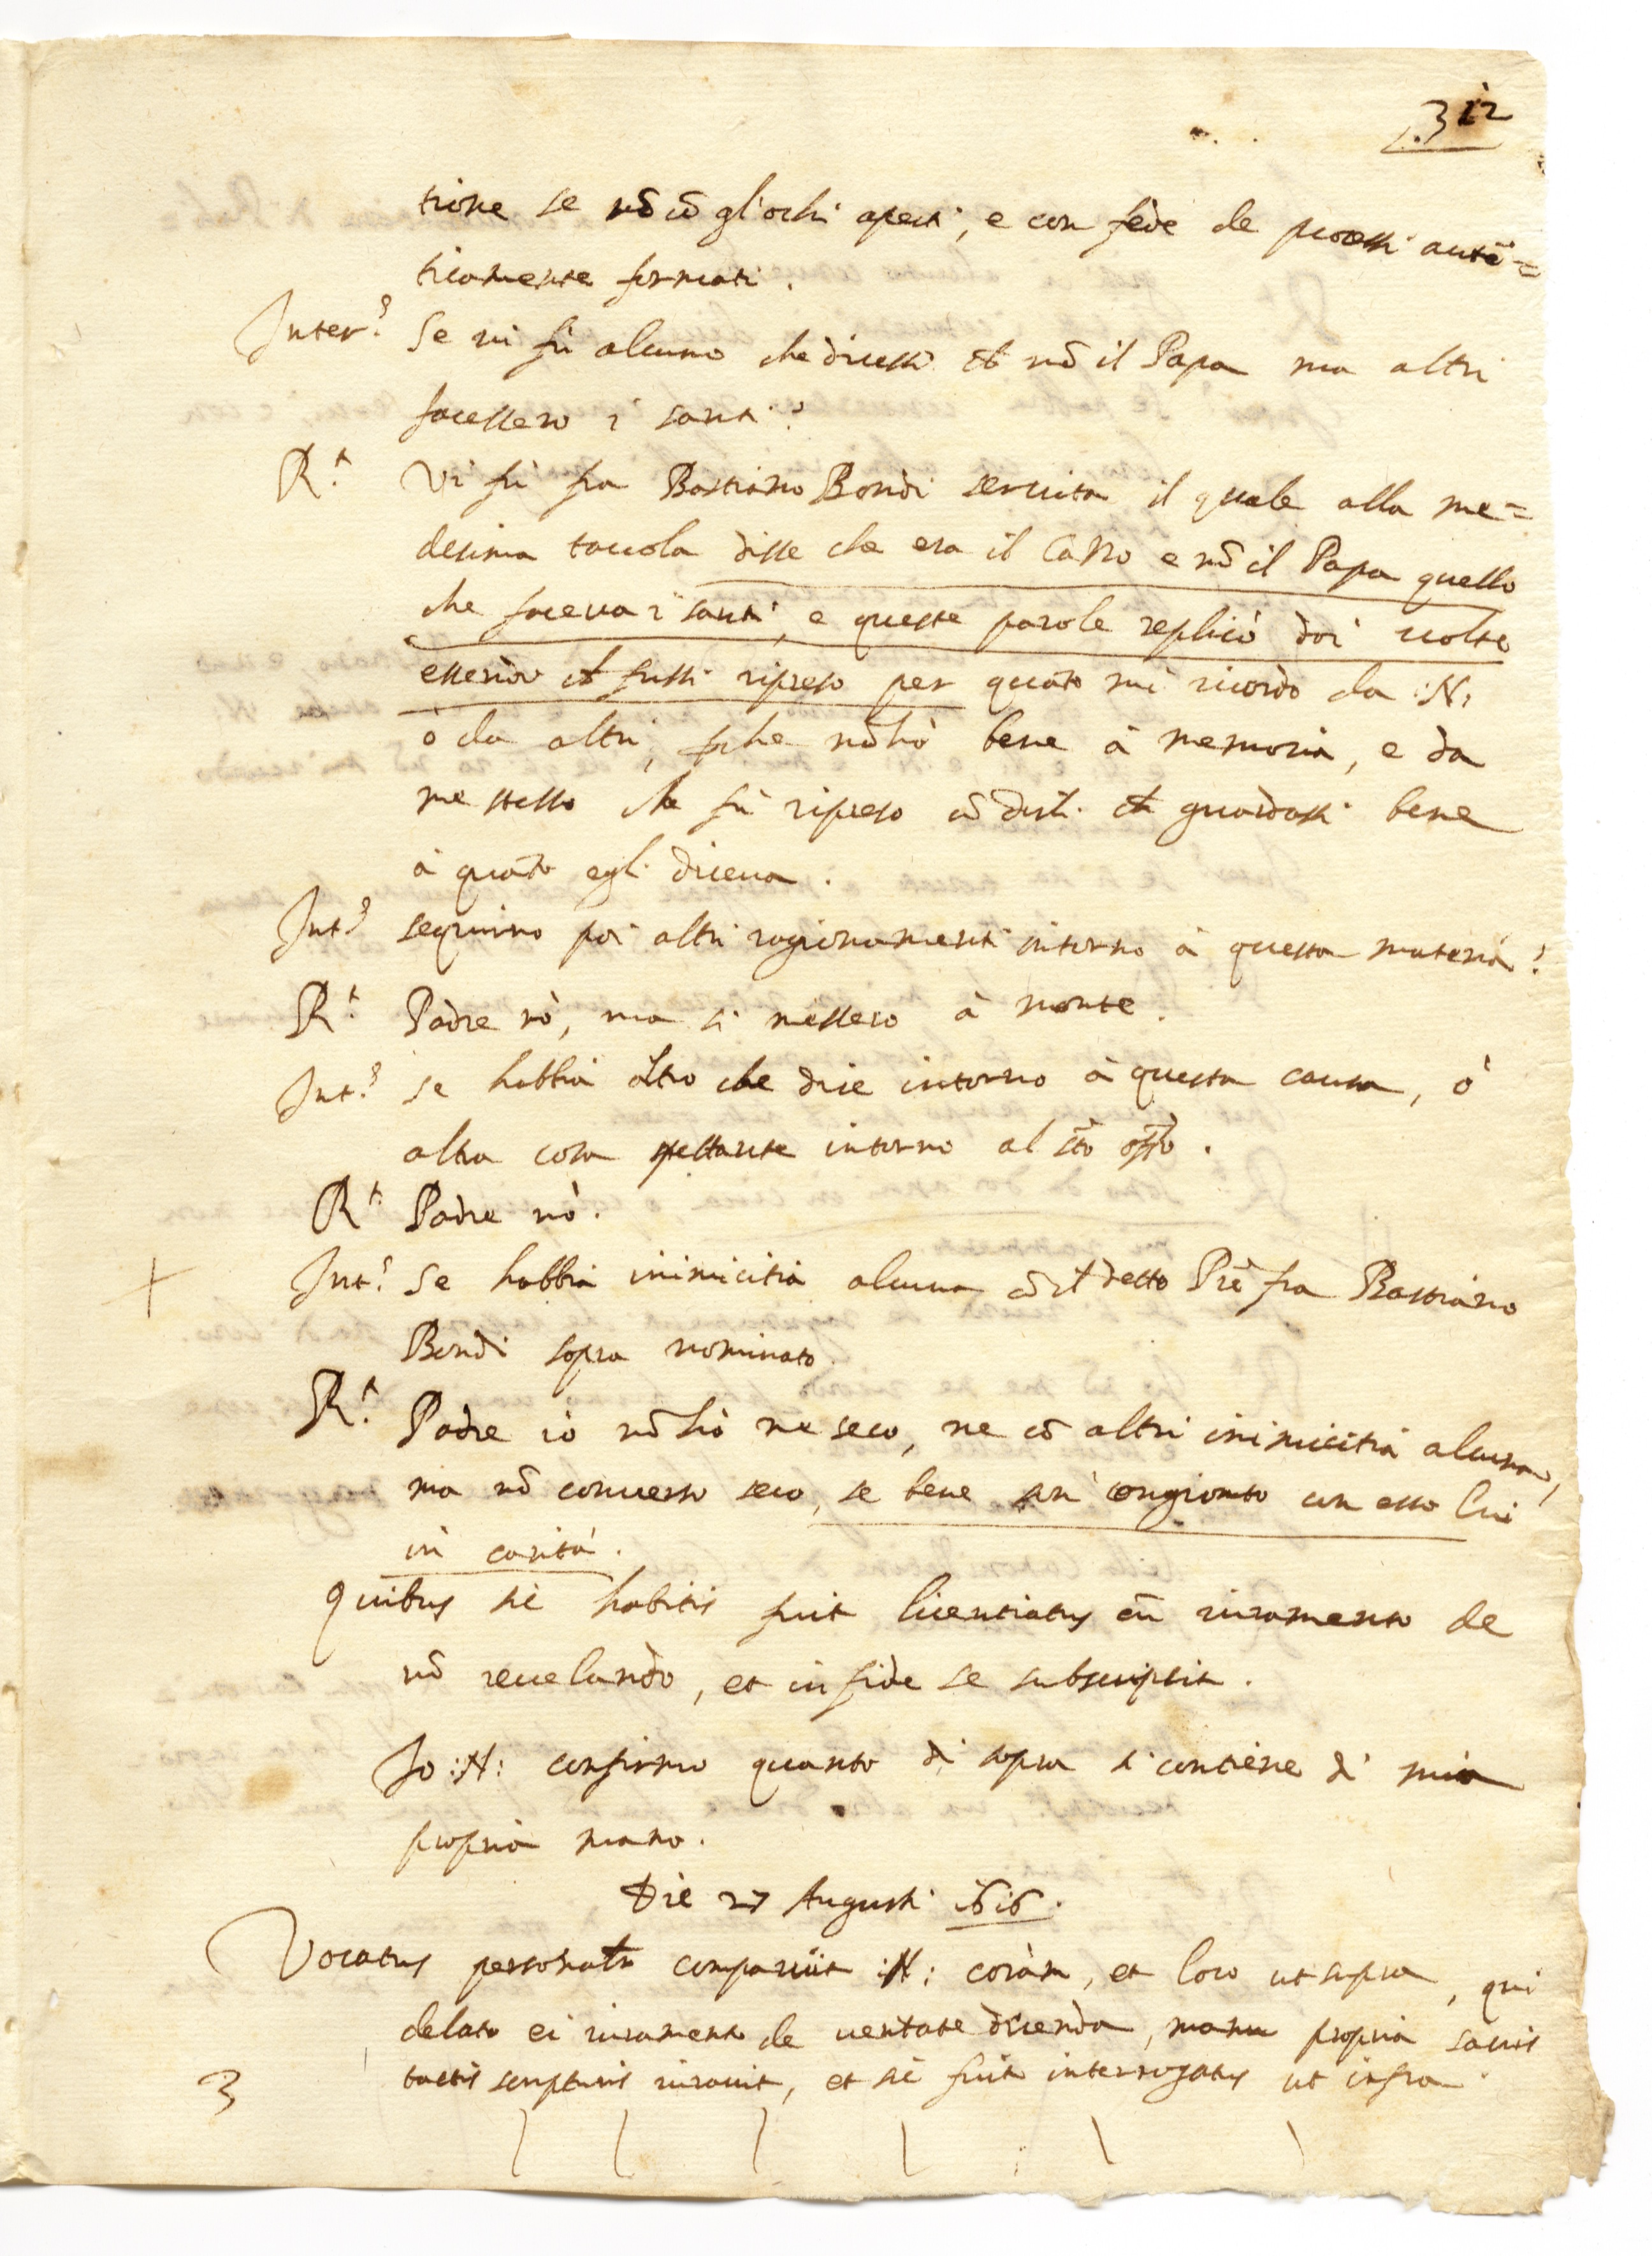 .3 12
tione se nõ cõ gl'ochi aperti, e con fede de processi autẽ=
ticamente formati.
Inter.º Se vi fù alcuno che dicessi che nõ il Papa ma altri
facessero i santi?
R.ᵗ Vi fù fra Bastiano Bondi servita il quale alla me=
desima tavola disse che era il Cazzo e nõ il Papa quello
che faceva i santi, e queste parole replicò doi volte
essendo che fussi ripreso per quãto mi ricordo da :N:
ò da altri, perche nõ hò bene à memoria, e da
me stesso che fù ripreso cõ dirli che guardassi bene
à quãto egli diceva.
Int.º seguirno poi altri ragionamenti intorno à questa materia?
R.ᵗ Padre nò, ma si messero à monte.
Int.º se habbia altro che dire intorno à questa causa, ò
altra cosa spettante intorno al Sto offo.
R.ᵗ Padre nò.
Int.º Se habbia inimicitia alcuna cõ il detto Pre fra Bastiano
Bondi sopra nominato.
R.ᵗ Padre io nõ hò ne seco, ne cõ altri inimicitia alcuna,
ma nõ converso seco, se bene son congionto con esso lui
in carità.
Quibus sic habitis fuit licentiatus cũ iuramento de
nõ revelando, et in fide se subscripsit.
Io :N: confirmo quanto di sopra si contiene di mia
propria mano.
Die 27 Augusti 1616.
Vocatus personaliter comparuit :N: coràm, et loco ut supra, qui
delato ei iuramento de veritate dicenda, manu propria sacris
tactis scripturis iuravit, et sic fuit interrogatus ut infra
3